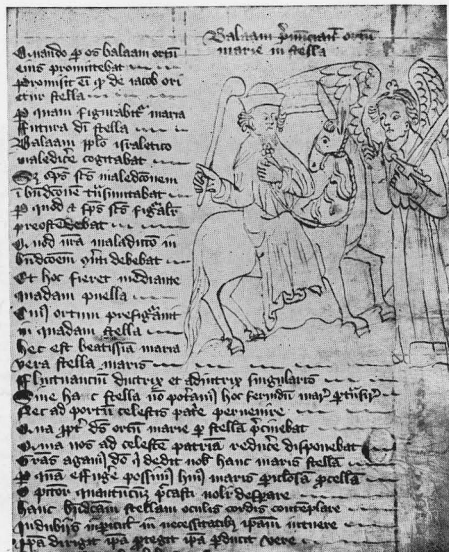 Balaam p̄nunciavit ortū
marie in stella
Quando p os balaam ortū
eius promittebat
Promisit eī q̄ de iacob ori
etur stella
P quam figurabit᷑ maria
futura di stella
Balaam pplo israletico
maledice cogitabat
Sꝫ sps̄ scs̄ maledcōnem
ī bn̄dcōnem tn̄smutabat
P quod sps̄ scs̄ figālr̄
preostēdebat
Quod nr̄a maladictio in
bn̄dcōem ꝯūti debebat
Et hoc fieret mediante
quadam puella
Cuiꝯ ortum prefigāuit
in quadam stella
Hec est beatissīa maria
vera stella maris
Fluctuanciū ductrix et adiutrix singularis
Sine hac stella nō potāmꝯ hoc mar̄ ptn̄sir̄
Nec ad portū celestis pat̄e pervenire
Qua ppt̄ ds̄ ortū marie p stella p̄cinebat
Quia nos ad celestē patria reducē disponebat
Grās agamꝯ dō q̄ dedit nob̄ hanc maris stella
P quā effugē possimꝯ hūiꝯ maris piculosā pcella
O pctor quantūcūꝫ pccasti noli despare
Hanc bn̄dcām stellam oculis cordis contēplare
in necessitatibꝫ ipam intuere
Ipa dirigit ipa ꝓtegit ipa ꝑducit vere